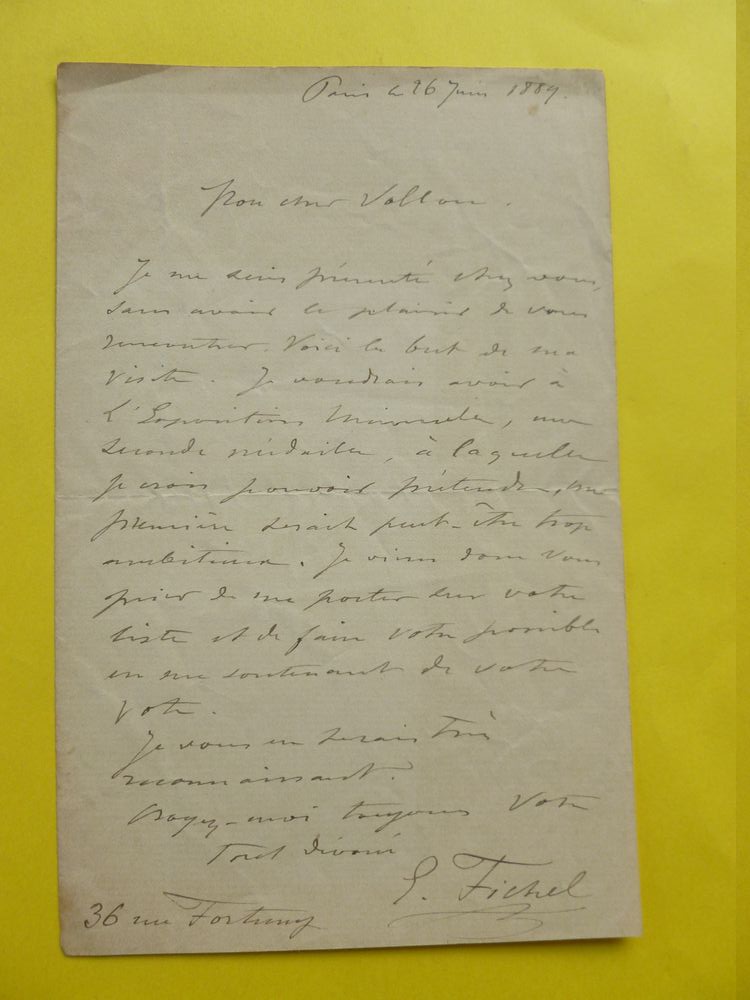 Paris le 26 Juin 1889.
Mon cher Vollon.
Je me suis présenté chez vous,
sans avoir le plaisir de vous
rencontrer. Voici le but de ma
visite. Je voudrais avoir à
L'Exposition Universelle, une
seconde médaille, à laquelle
je crois pouvoir prétendre, une
première serait peut-être trop
ambitieux. Je viens donc vous
prier de me porter sur votre
liste et de faire votre possible
en me soutenant de votre
vote.
Je vous en serais très
reconnaissant.
Croyez-moi toujours Votre
tout dévoué
E. Fichel
36 rue Fortuny